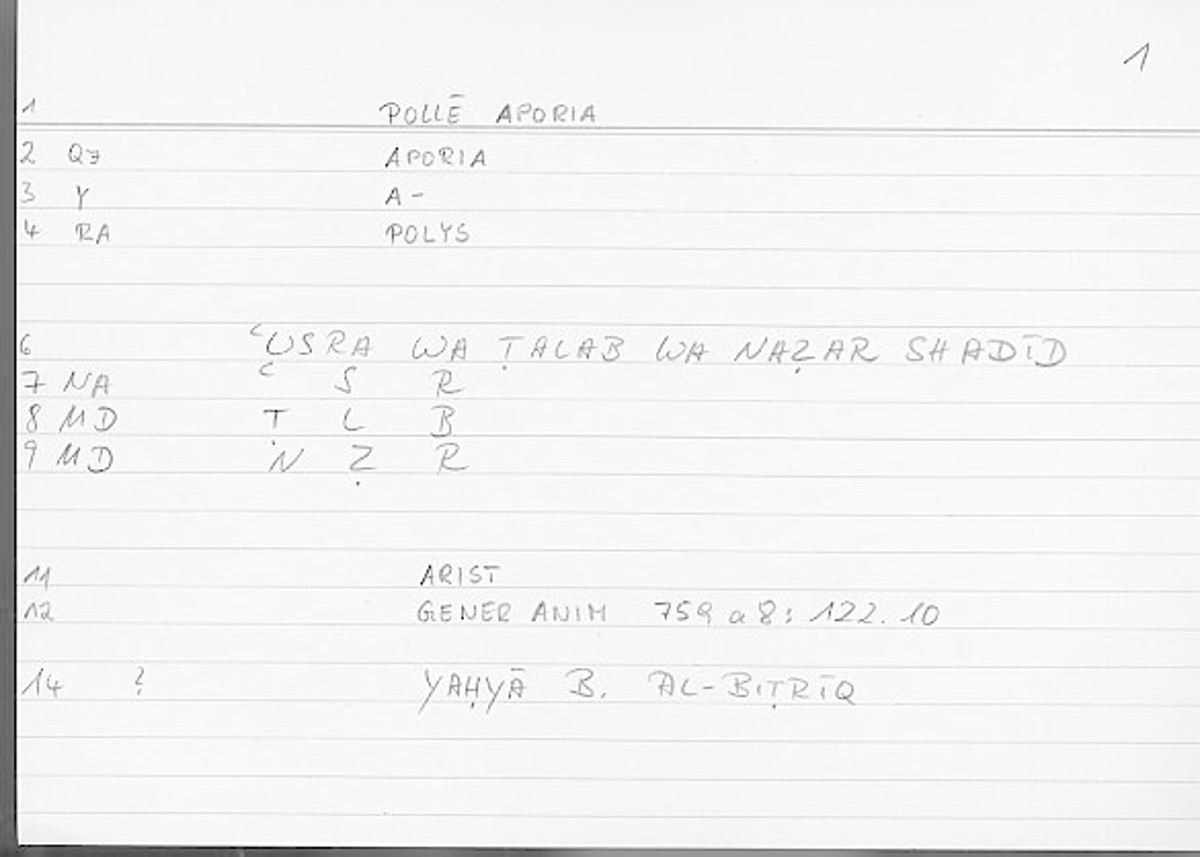 1
1 POLLĒ APORIA
2 Q7 APORIA
3 Y A-
4 RA POLYS
6 ʿUSRA WA ṬALAB WA NAẒAR SHADĪD
7 NA ʿ S R
8 MD Ṭ L B
9 MD N Ẓ R
11 ARIST
12 GENER ANIM 759 a 8 : 122.10
14 ? YAḤYĀ B. AL-BIṬRĪQ